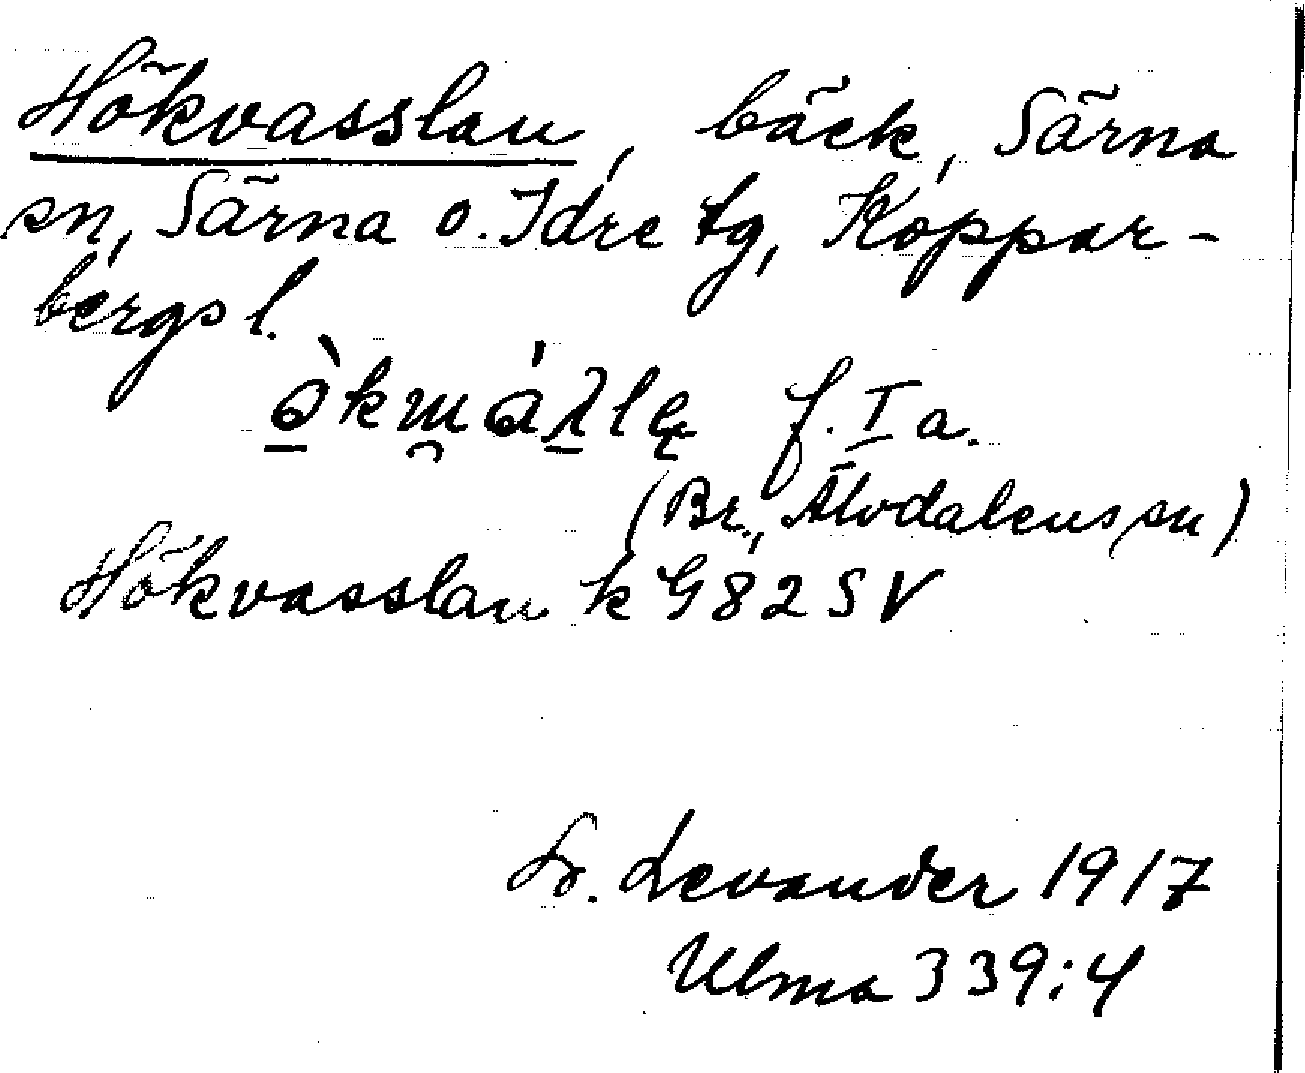 Hökvasslan, bäck, Särna
sn, Särna o. Idre tg, Koppar-
bergs l.
f. I a.
(Br., Älvdalens sn)
Hökvasslan k G 82 SV
L. Levander 1917
Ulma 339:4